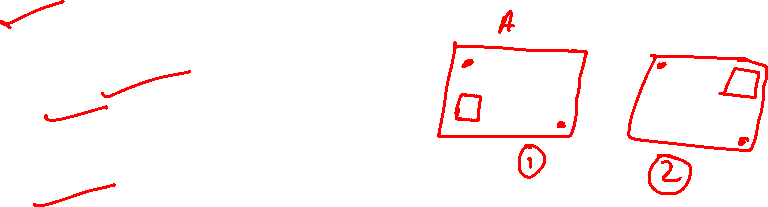 A
1
2